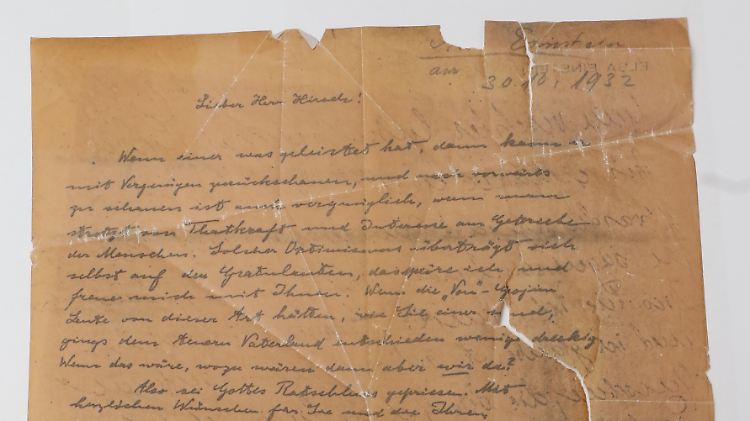 Einstein
ELSA EINSTEIN
am 30.10.1932
Lieber Herr Hirsch!
Wenn einer was geleistet hat, dann kann er
mit Vergnügen zurückschauen, und nach vorwärts
zu schauen ist auch vergnüglich, wenn man
strotzt von Thatkraft und Interesse am Getriebe
der Menschen. Solcher Optimismus überträgt sich
selbst auf den Gratulanten, das spüre ich, und
freue mich mit Ihnen. Wenn die "Von"-Gojim
Leute von dieser Art hätten, wie Sie einer sind,
gings dem teuren Vaterland entschieden weniger dreckig.
Wenn das wäre, wozu wären dann aber wir da?
Also sei Gottes Ratschluss gepriesen. Mit
herzlichen Wünschen für Sie und die Ihren